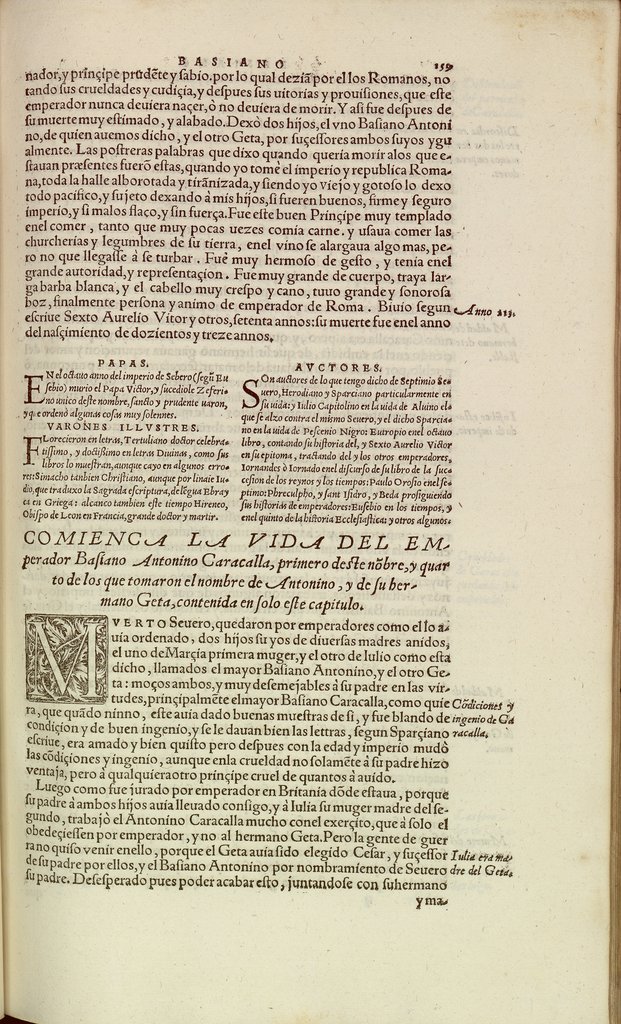 BASIANO
159
nador, y prinçipe prudẽte y sabio. por lo qual dezia᷉ por el los Romanos, no
tando sus crueldades y cudiçia, y despues sus uitorias y prouisiones, que este
emperador nunca deuiera naçer, ò no deuiera de morir. Y asi fue despues de
su muerte muy estimado, y alabado. Dexò dos hijos, el vno Basiano Antoni
no, de quien auemos dicho, y el otro Geta, por suçessores ambos suyos ygu
almente. Las postreras palabras que dixo quando queria morir alos que e-
stauan præsentes fuerõ estas, quando yo tomè el imperio y republica Roma-
na, toda la halle alborotada y tirãnizada, y siendo yo viejo y gotoso lo dexo
todo pacifico, y sujeto dexando à mis hijos, si fueren buenos, firme y seguro
imperio, y si malos flaco, y sin fuerça. Fue este buen Prinçipe muy templado
enel comer, tanto que muy pocas uezes comia carne. y usaua comer las
churcherias y legumbres de su tierra, enel vino se alargaua algo mas, pe-
ro no que llegasse à se turbar. Fuè muy hermoso de gesto, y tenia enel
grande autoridad, y representaçion. Fue muy grande de cuerpo, traya lar-
ga barba blanca, y el cabello muy crespo y cano, tuuo grande y sonorosa
boz, finalmente persona y animo de emperador de Roma. Biuiò segun
escriue Sexto Aurelio Vitor y otros, setenta annos: su muerte fue enel anno
del nasçimiento de dozientos y treze annos.
Anno 213.
PAPAS.
EN el octauo anno del imperio de Sebero (segũ Eu
sebio) murio el Papa Victor, y sucediole Zeferi-
no unico deste nombre, sancto y prudente uaron,
y que ordenò algunas cosas muy solennes.
VARONES ILLVSTRES.
FLorecieron en letras, Tertuliano doctor celebra-
tissimo, y doctissimo en letras Diuinas, como sus
libros lo muestran, aunque cayo en algunos erro-
res: Simacho tanbien Christiano, aunque por linaie Iu-
dio, que traduxo la Sagrada escriptura, de lẽgua Ebray
ca en Griega: alcanco tambien este tiempo Hireneo,
Obispo de Leon en Francia, grande doctor y martir.
AVCTORES.
SOn auctores de lo que tengo dicho de Septimio Se-
uero, Herodiano y Sparciano particularmente en
su uida: y Iulio Capitolino en la uida de Aluino el-
que se alzo contra el mismo Seuero, y el dicho Sparcia-
no en la uida de Pescenio Nigro: Eutropio enel octauo
libro, contando su historia del, y Sexto Aurelio Victor
en su epitoma, tractando del y los otros emperadores,
Iornandes ò Iornado enel discurso de su libro de la suc-
cession de los reynos y los tiempos: Paulo Orosio enel se-
ptimo: Phreculpho, y sant Isidro, y Beda prosiguiendo
sus historias de emperadores: Eusebio en los tiempos, y
enel quinto de la historia Ecclesiastica: y otros algunos.
COMIENCA LA VIDA DEL EM-
perador Basiano Antonino Caracalla, primero deste nõbre, y quar
to de los que tomaron el nombre de Antonino, y de su her-
mano Geta, contenida en solo este capitulo.
MVERTO Seuero, quedaron por emperadores como el lo a-
uia ordenado, dos hijos suyos de diuersas madres anidos,
el uno de Marçia primera muger, y el otro de Iulio como esta
dicho, llamados el mayor Basiano Antonino, y el otro Ge-
ta: moços ambos, y muy desemejables à su padre en las vir-
tudes, prinçipalmẽte el mayor Basiano Caracalla, como quie
ra, que quãdo ninno, este auia dado buenas muestras de si, y fue blando de
condiçion y de buen ingenio, y se le dauan bien las letras, segun Sparçiano
escriue, era amado y bien quisto pero despues con la edad y imperio mudò
las cõdiçiones y ingenio, aunque enla crueldad no solamẽte à su padre hizo
ventaja, pero à qualquiera otro prinçipe cruel de quantos à auido.
Cõdiciones y
ingenio de Ca
racalla.
Luego como fue jurado por emperador en Britania dõde estaua, porque
su padre à ambos hijos auia lleuado consigo, y à Iulia su muger madre del se-
gundo, trabajò el Antonino Caracalla mucho conel exerçito, que à solo el
obedeçiessen por emperador, y no al hermano Geta. Pero la gente de guer
ra no quiso venir enello, porque el Geta auia sido elegido Cesar, y suçessor
de su padre por ellos, y el Basiano Antonino por nombramiento de Seuero
su padre. Desesperado pues poder acabar esto, juntandose con su hermano
Iulia era ma-
dre del Geta.
y ma-